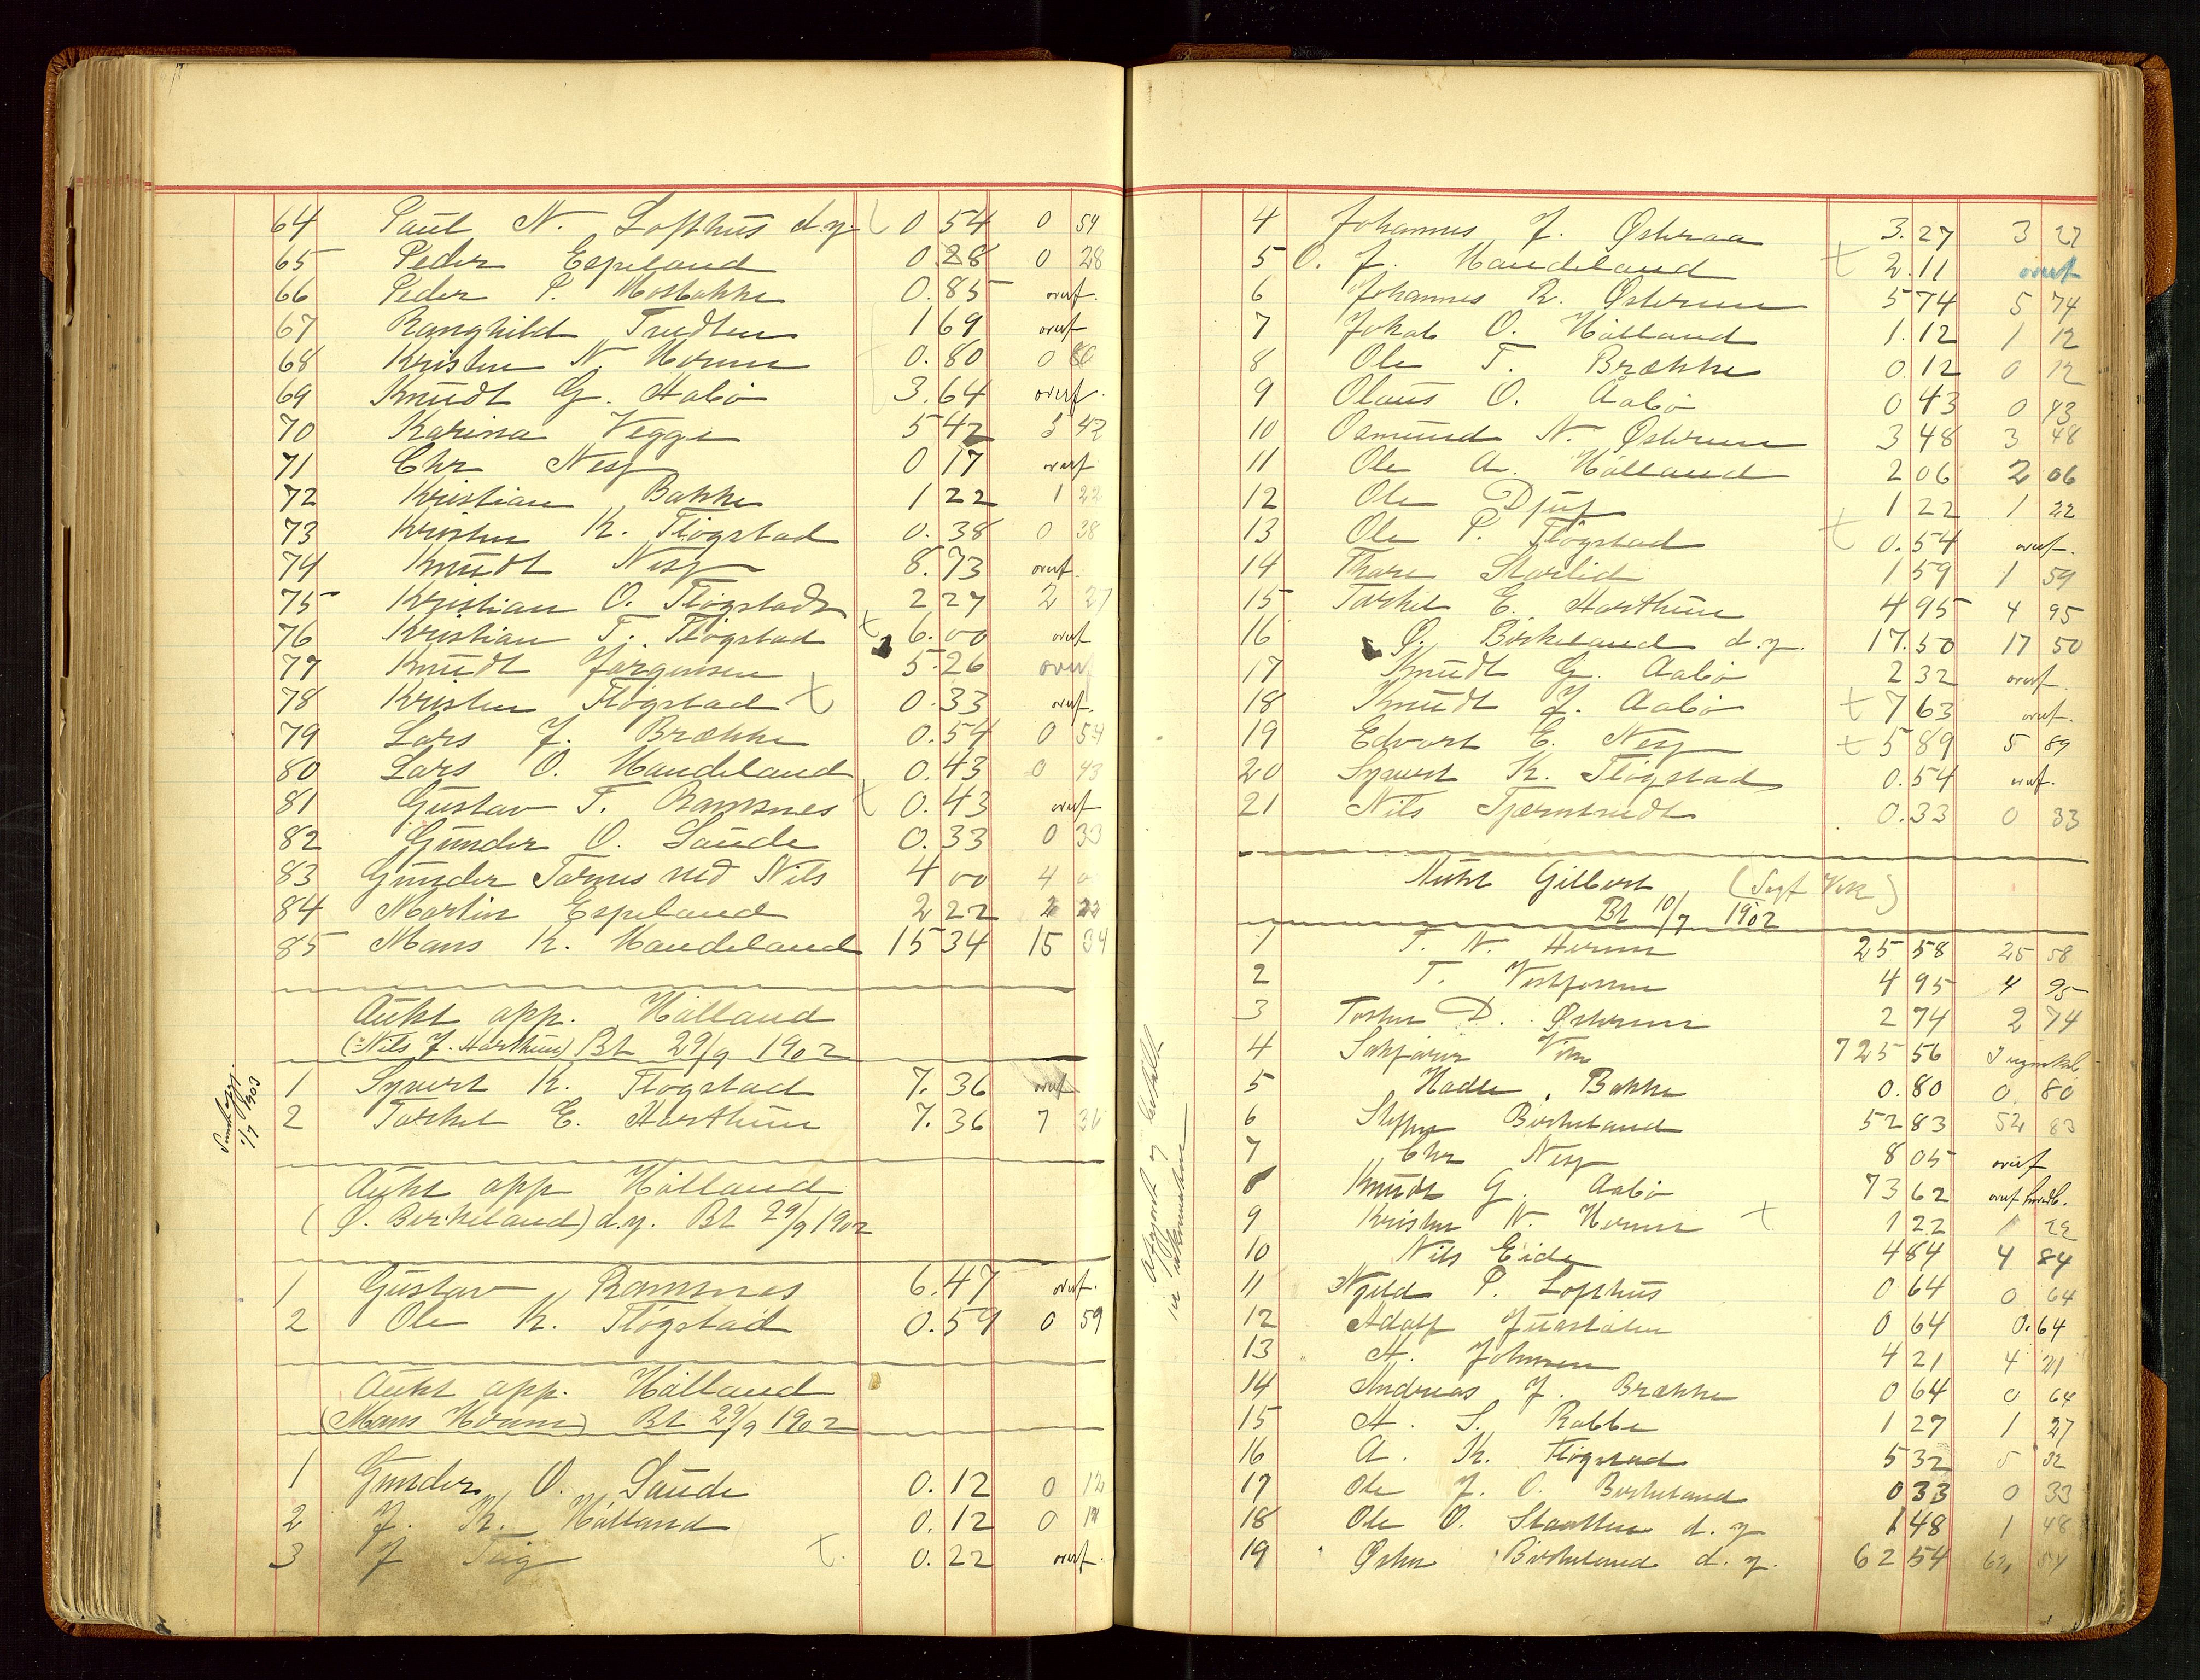 64 Paul N. Lofthus d.y. 0 54 0 54
65 Peder Espeland 0 28 0 28
66 Peder P. Mosbakke 0.85 overf.
67 Ranghild Tvedten 1 69 overf
68 Kristen N. Horum 0.80 0 80
69 Knudt G. Aabø 3.64 overf.
70 Karina Vegge 5 42 5 42
71 Chr Nesz 0 17 overf
72 Kristian Bakke 1 22 1 22
73 Kristen K. Fløgstad 0.38 0 38
74 Knudt Nesz 8.73 overf.
75 Kristian O. Fløgstad 2 27 2 27
76 Kristian T. Fløgstad 6.00 overf
77 Knudt Jørgensen 5.26 overf
78 Kristen Fløgstad 0.33 overf.
79 Lars J. Brække 0.54 0 54
80 Lars O. Handeland 0.43 0 43
81 Gustav T. Ramsnes 0.43 overf
82 Gunder O. Saude 0.33 0 33
83 Gunder Tormes ved Nils 4 00 4 0
84 Martin Espeland 2 22 2 22
85 Mans K. Handeland 15 34 15 34
Aukt opp. Hålland
(Nils J. Harthun) Bt 29/9 1902
1 Syvert K. Fløgstad 7.36 overf
2 Torkel E. Harthun 7.36 7 36
1/7 1903
Aukt opp Hålland
(O. Birkeland) d.y. Bt 29/9 1902
1 Gustav Ramsnes 6.47 overf.
2 Ole K. Fløgstad 0.59 0 59
Aukt opp. Hålland
(Mans Horum) Bt 29/9 1902
1 Gunder O. Saude 0.12 0 12
2 J. K. Hålland 0.12 0 12
3 J Teig 0.22 overf.
4 Johannes J. Østraa 3.27 3 27
5 O. J. Handeland 2.11 overf
6 Johannes R. Østrem 5 74 5 74
7 Jokab O. Hålland 1.12 1 12
8 Ole T. Brække 0.12 0 12
9 Olaus O. Aabø 0 43 0 43
10 Osmund N. Østrem 3 48 3 48
11 Ole A. Hålland 2 06 2 06
12 Ole Djup 1 22 1 22
13 Ole P. Fløgstad 0.54 overf.
14 Thore Starlid 1 59 1 59
15 Torkel E. Harthun 4 95 4 95
16 O. Birkeland d.y. 17.50 17 50
17 Knudt G. Aabø 2 32 overf.
18 Knudt J. Aabø 7 63 overf.
19 Edvart E. Nesz 5 89 5 89
20 Syvert K. Fløgstad 0.54 overf.
21 Nils Tjærntvedt 0.33 0 33
Aukt Gilbert
Bt 10/7 1902
1 T. N. Horum 25 58 25 58
2 T. Vestfossen 4 95 4 95
3 Torkel D. Østrem 2 74 2 74
4 725 56
5 Hadle Bakke 0.80 0.80
6 Steffen Birkeland 52 83 52 83
7 Chr Nesz 8 05 overf
8 Knudt G. Aabø 73 62 overf
9 Kristen N. Horum 1 22 1 22
10 Nils Eide 4 84 4 84
11 P. Lofthus 0 64 0 64
12 Adolf 0 64 0.64
13 A. Johnsen 4 21 4 21
14 Andreas J. Brække 0 64 0 64
15 A. S. Rabbe 1 27 1 27
16 A. K. Fløgstad 5 32 5 32
17 Ole J. O. Birkeland 0 33 0 33
18 Ole O. Staatten d.y 1 48 1 48
19 Østen Birkeland d.y. 62 54 62 54